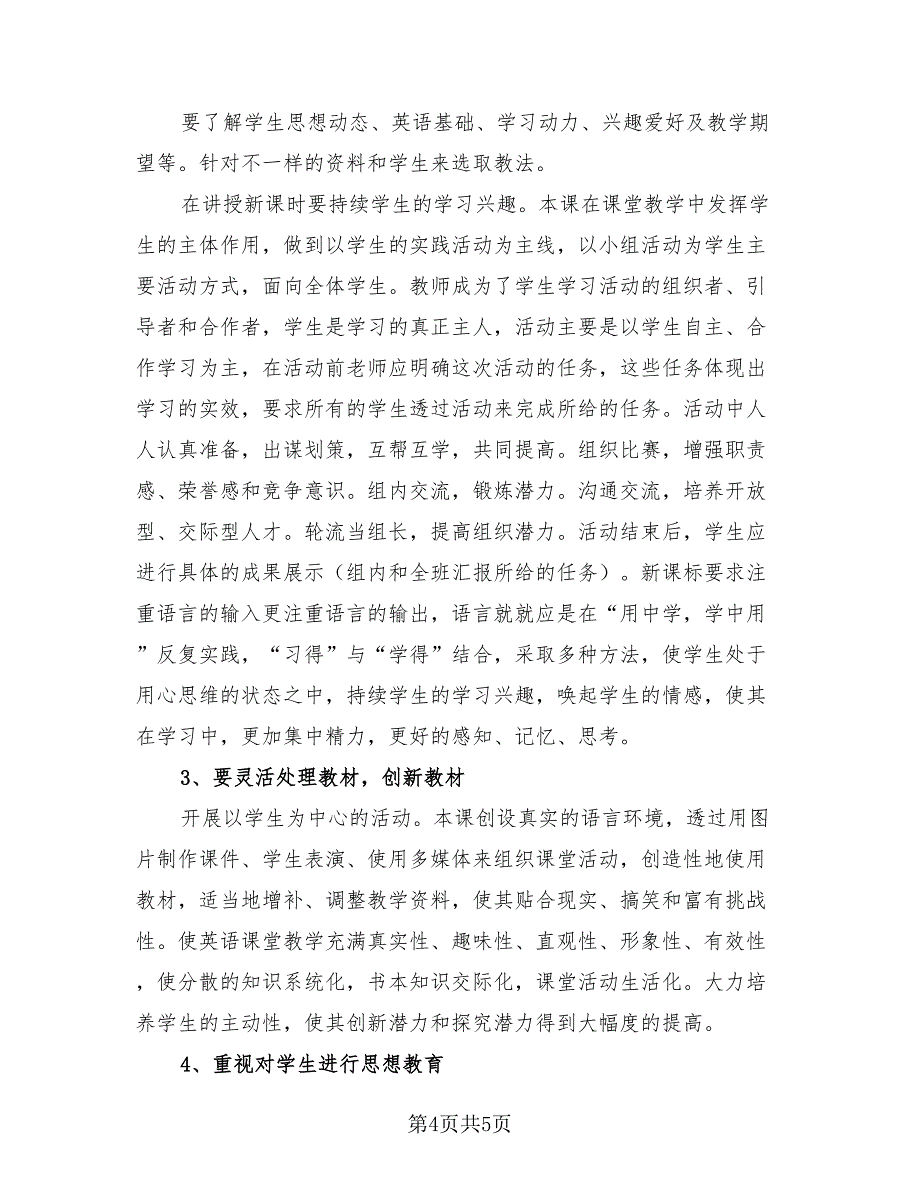 要了解学生思想动态、英语基础、学习动力、兴趣爱好及教学期
望等。针对不一样的资料和学生来选取教法。
在讲授新课时要持续学生的学习兴趣。本课在课堂教学中发挥学
生的主体作用，做到以学生的实践活动为主线，以小组活动为学生主
要活动方式，面向全体学生。教师成为了学生学习活动的组织者、引
导者和合作者，学生是学习的真正主人，活动主要是以学生自主、合
作学习为主，在活动前老师应明确这次活动的任务，这些任务体现出
学习的实效，要求所有的学生透过活动来完成所给的任务。活动中人
人认真准备，出谋划策，互帮互学，共同提高。组织比赛，增强职责
感、荣誉感和竞争意识。组内交流，锻炼潜力。沟通交流，培养开放
型、交际型人才。轮流当组长，提高组织潜力。活动结束后，学生应
进行具体的成果展示（组内和全班汇报所给的任务）。新课标要求注
重语言的输入更注重语言的输出，语言就就应是在“用中学，学中用
”反复实践，“习得”与“学得”结合，采取多种方法，使学生处于
用心思维的状态之中，持续学生的学习兴趣，唤起学生的情感，使其
在学习中，更加集中精力，更好的感知、记忆、思考。
3、要灵活处理教材，创新教材
开展以学生为中心的活动。本课创设真实的语言环境，透过用图
片制作课件、学生表演、使用多媒体来组织课堂活动，创造性地使用
教材，适当地增补、调整教学资料，使其贴合现实、搞笑和富有挑战
性。使英语课堂教学充满真实性、趣味性、直观性、形象性、有效性
，使分散的知识系统化，书本知识交际化，课堂活动生活化。大力培
养学生的主动性，使其创新潜力和探究潜力得到大幅度的提高。
4、重视对学生进行思想教育
第4页共5页